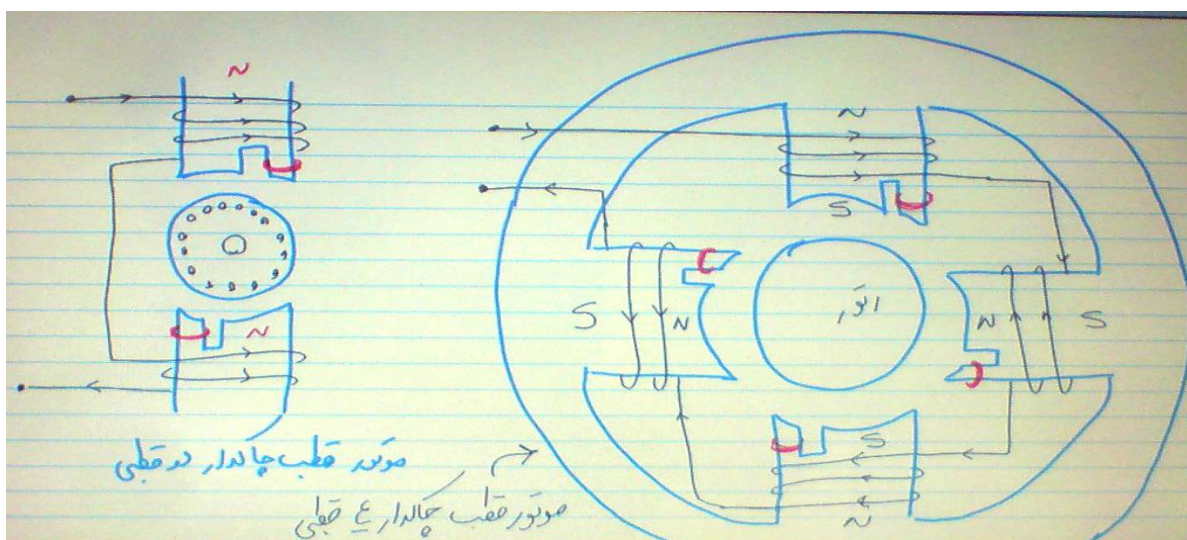 N
N
موتور قطب چاکدار دو قطبی
N
S
S N
N S
S
N
موتور قطب چاکدار ٤ قطبی